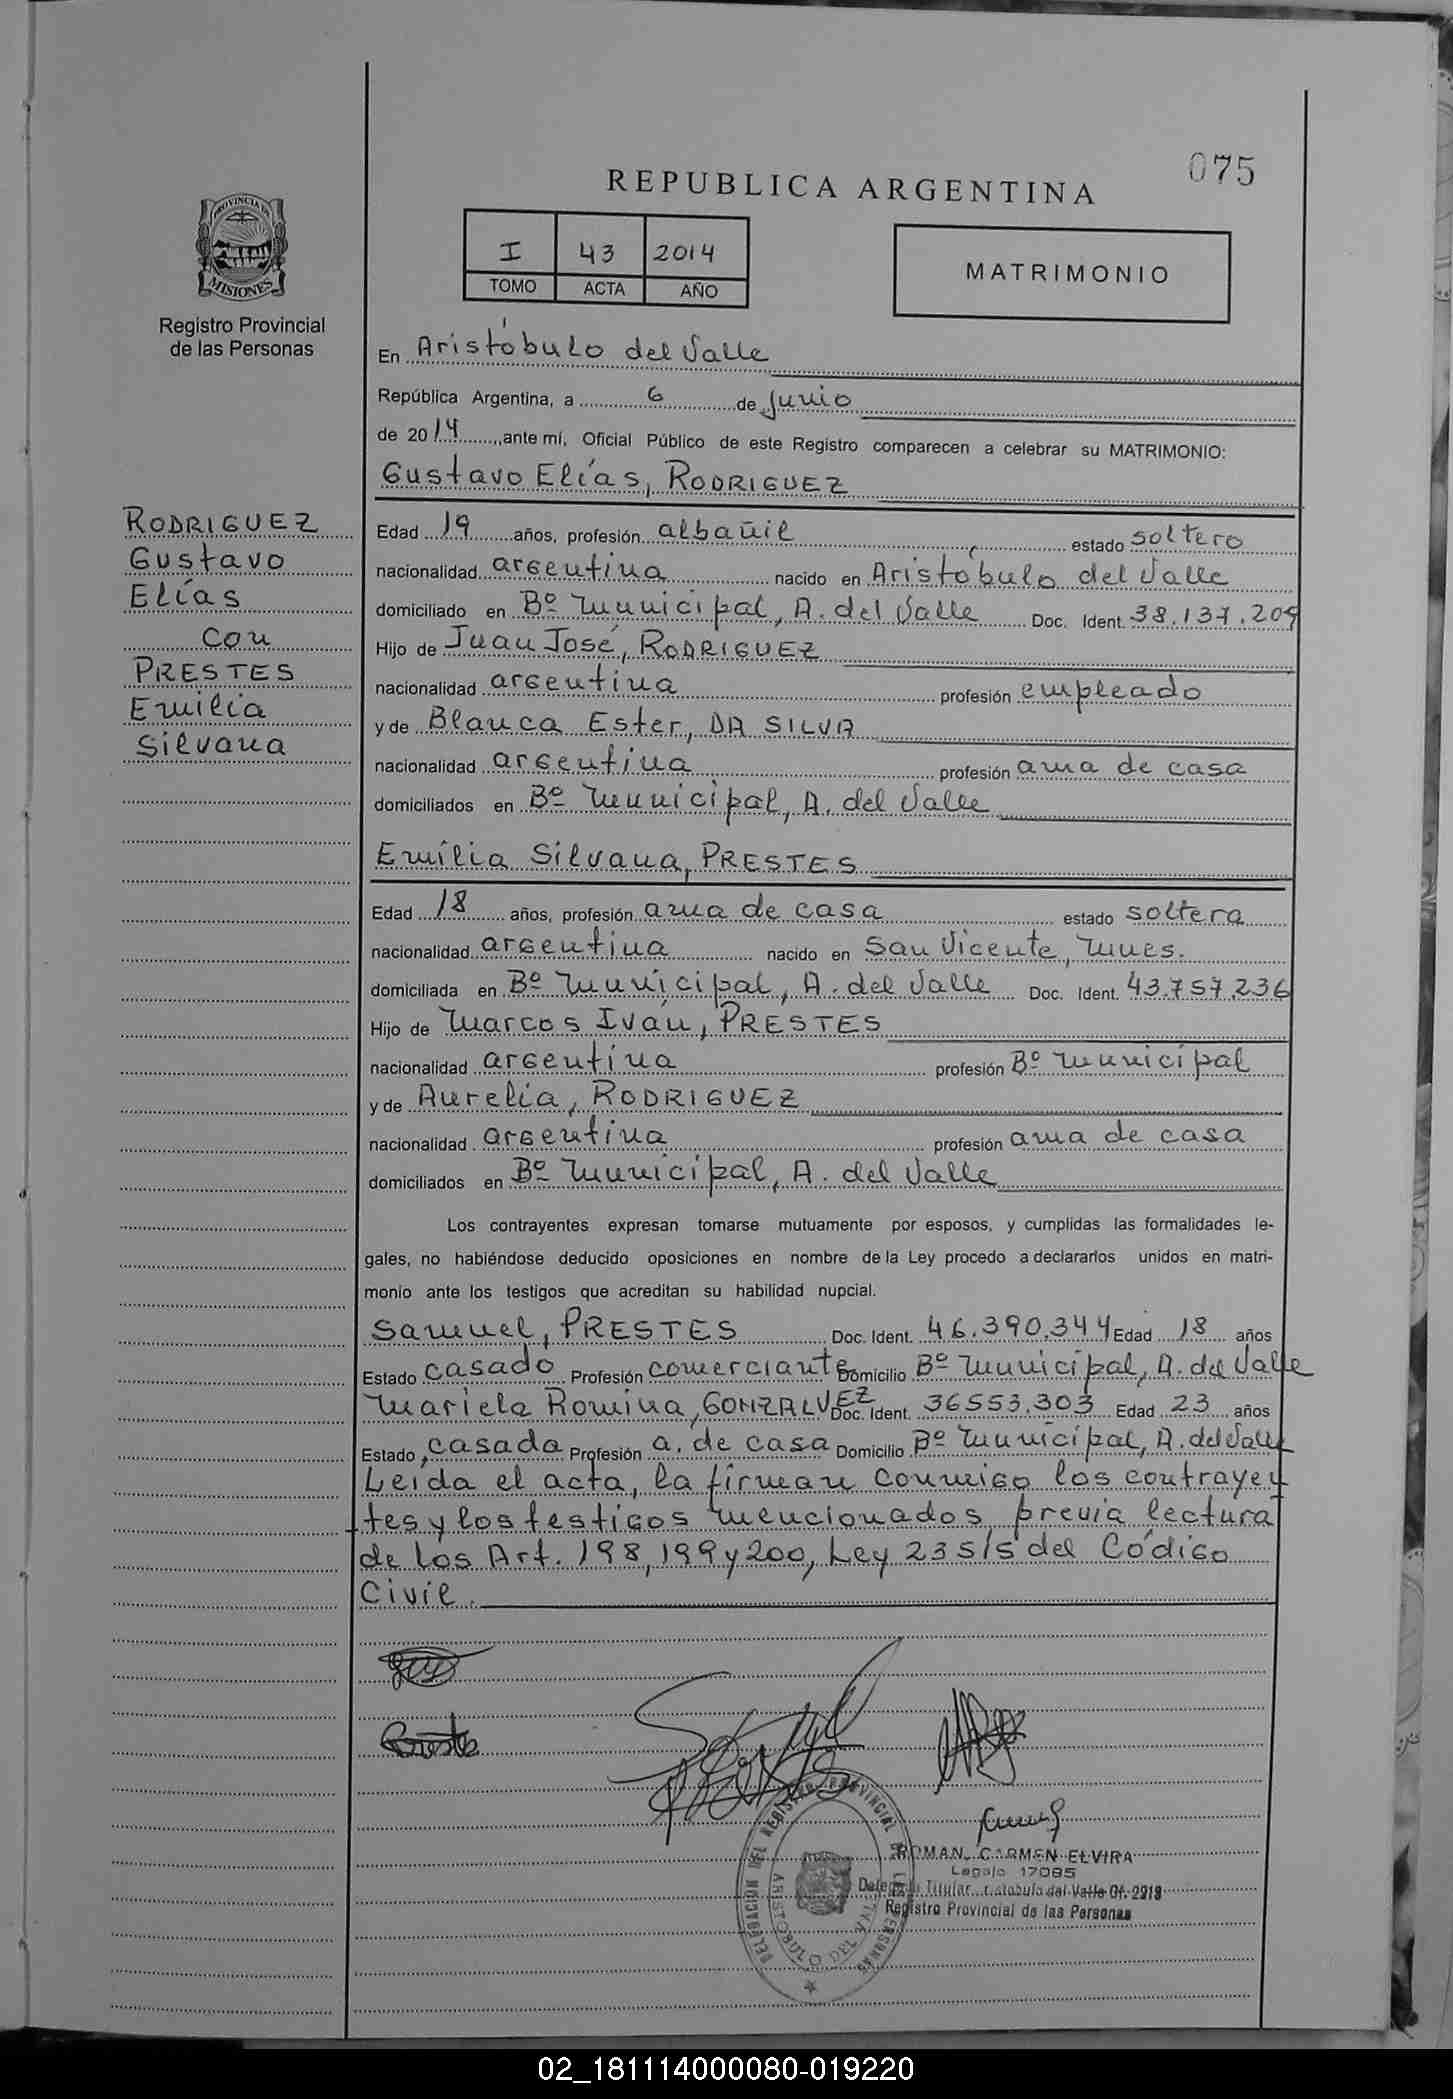 075
REPUBLICA ARGENTINA
PROVINCIA DE
MISIONES
Registro Provincial
de las Personas
I 43 2014
TOMO ACTA AÑO
MATRIMONIO
En Aristóbulo del Valle
República Argentina, a 6 de Junio
de 2014, ante mí, Oficial Público de este Registro comparecen a celebrar su MATRIMONIO:
Gustavo Elías, RODRIGUEZ
RODRIGUEZ
Gustavo
Elías
con
PRESTES
Emilia
Silvana
Edad 19 años, profesión albañil estado soltero
nacionalidad argentina nacido en Aristóbulo del Valle
domiciliado en Bº Municipal, A. del Valle Doc. Ident. 38.137.209
Hijo de Juan José, RODRIGUEZ
nacionalidad argentina profesión empleado
y de Blanca Ester, DA SILVA
nacionalidad argentina profesión ama de casa
domiciliados en Bº Municipal, A. del Valle
Emilia Silvana, PRESTES
Edad 18 años, profesión ama de casa estado soltera
nacionalidad argentina nacido en San Vicente, Mnes.
domiciliada en Bº Municipal, A. del Valle Doc. Ident. 43.757.236
Hijo de Marcos Iván, PRESTES
nacionalidad argentina profesión Bº Municipal
y de Aurelia, RODRIGUEZ
nacionalidad argentina profesión ama de casa
domiciliados en Bº Municipal, A. del Valle
Los contrayentes expresan tomarse mutuamente por esposos, y cumplidas las formalidades le-
gales, no habiéndose deducido oposiciones en nombre de la Ley procedo a declararlos unidos en matri-
monio ante los testigos que acreditan su habilidad nupcial.
Samuel, PRESTES Doc. Ident. 46.390.344 Edad 18 años
Estado casado Profesión comerciante Domicilio Bº Municipal, A. del Valle
Mariela Romina, GONZALVEZ Doc. Ident. 36553.303 Edad 23 años
Estado casada Profesión a. de casa Domicilio Bº Municipal, A. del Valle
Leida el acta, la firman conmigo los contrayen
tes y los testigos mencionados, previa lectura
de los Art. 198, 199 y 200, Ley 23515 del Código
Civil.
DELEGACION DEL REGISTRO PROVINCIAL DE LAS PERSONAS
ARISTOBULO DEL VALLE
ROMAN, CARMEN ELVIRA
Legajo 17085
Delegada Titular Aristobulo del Valle Of. 2213
Registro Provincial de las Personas
02_181114000080-019220